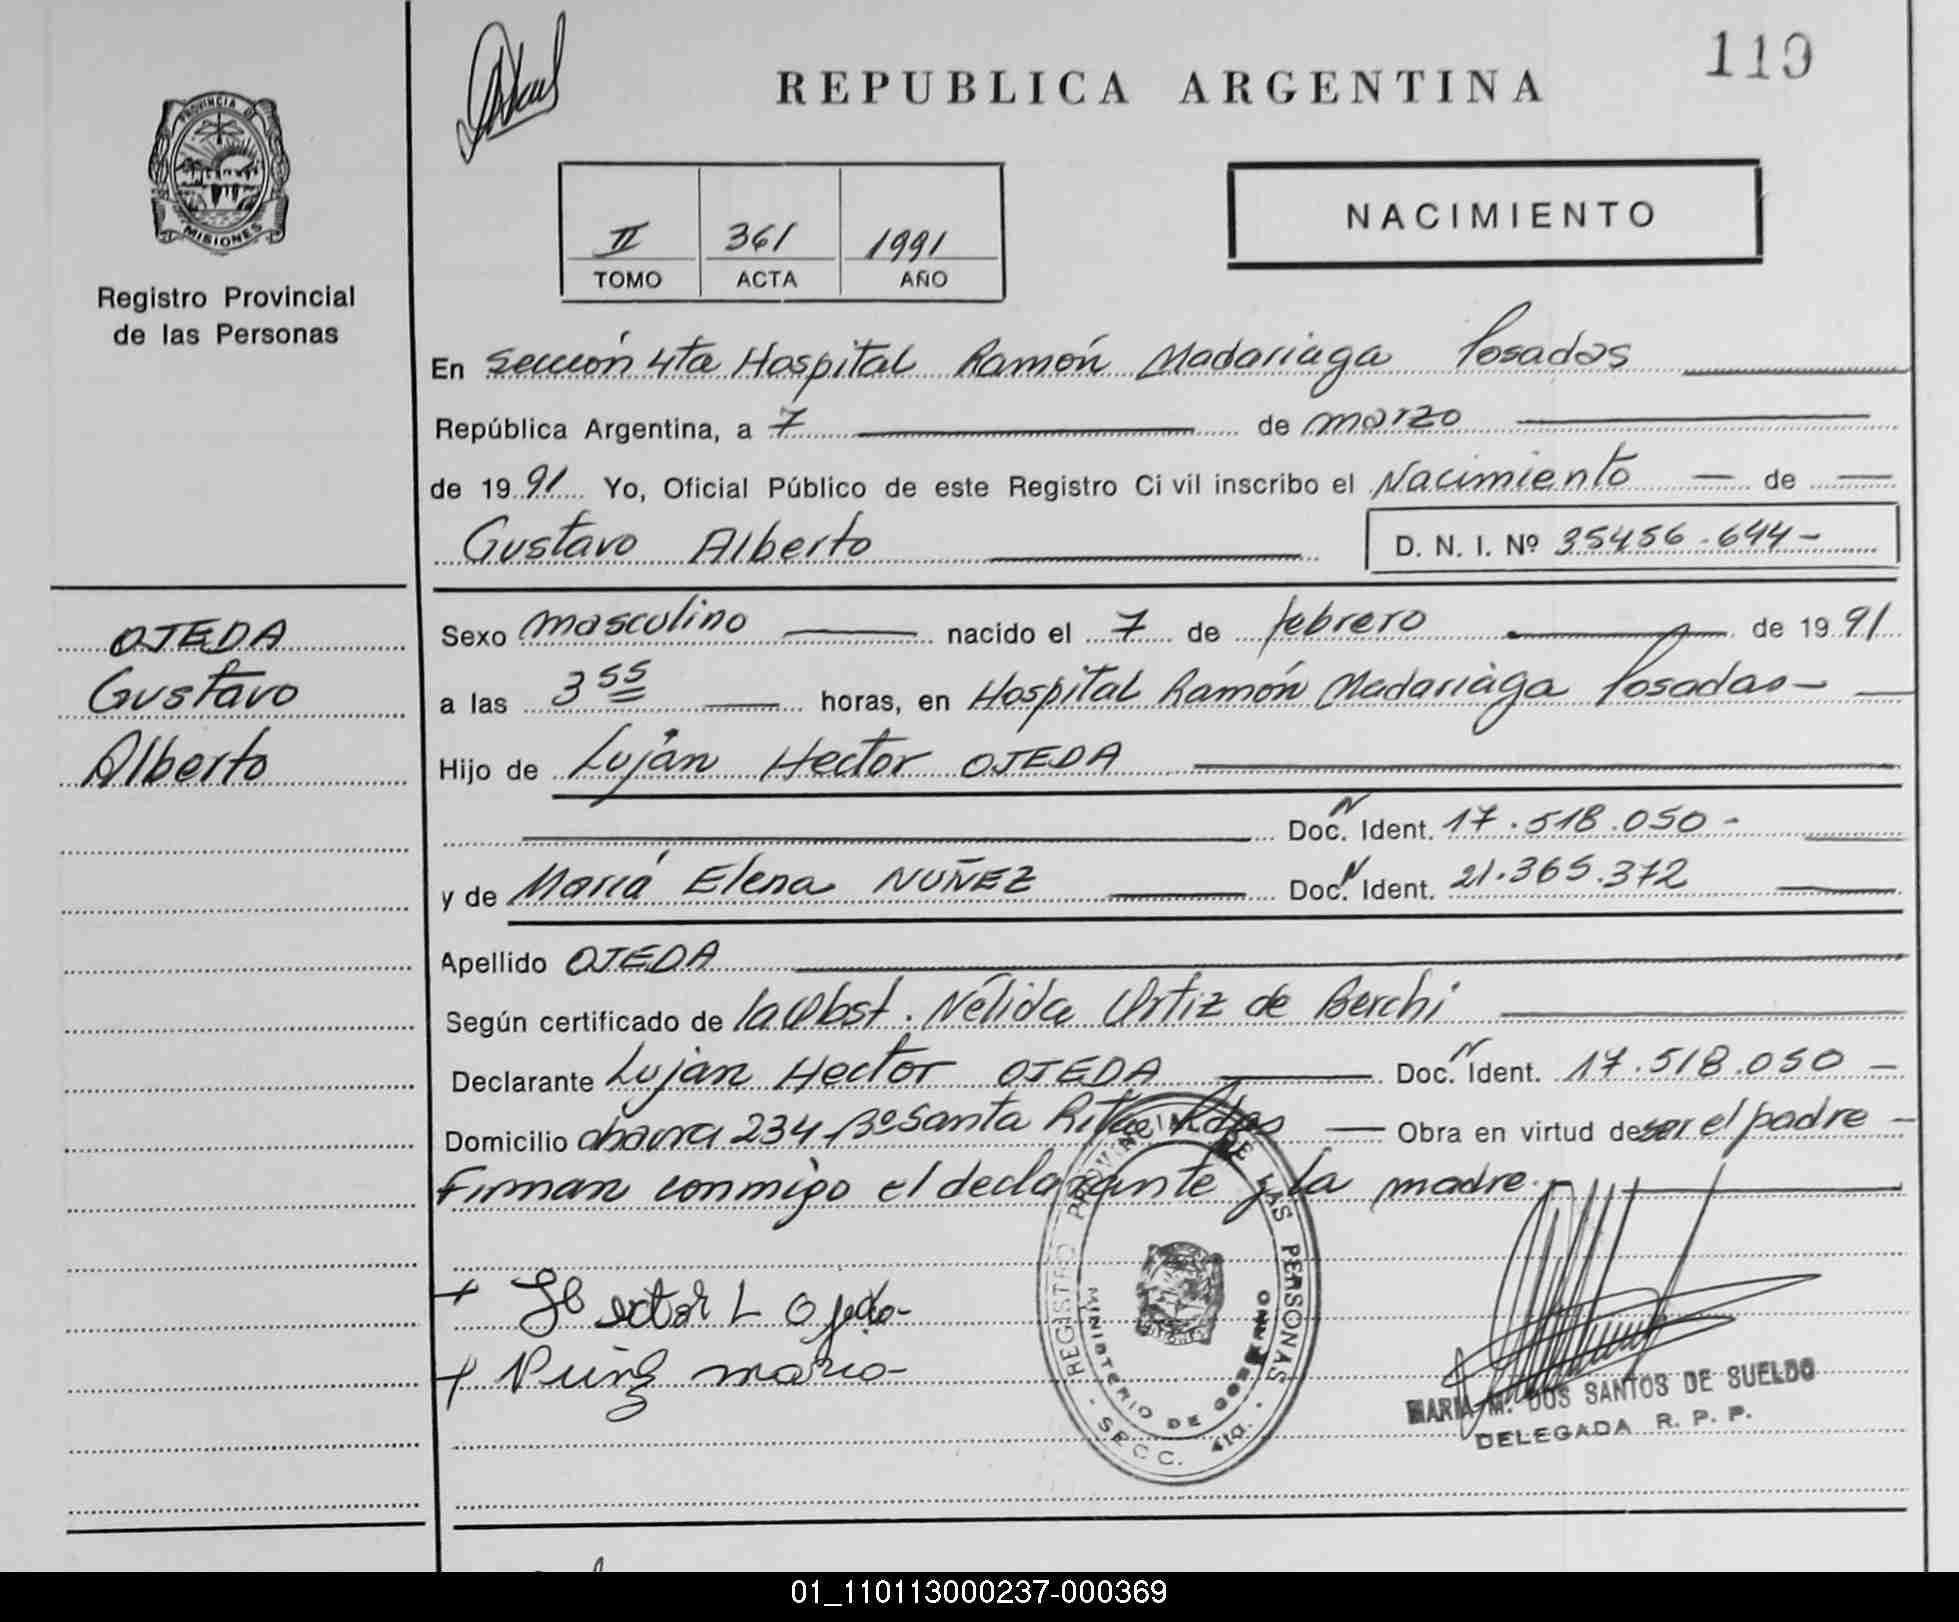 119
REPUBLICA ARGENTINA
PROVINCIA DE
MISIONES
Registro Provincial
de las Personas
NACIMIENTO
II 361 1991
TOMO ACTA AÑO
En Sección 4ta Hospital Ramón Madariaga Posadas
República Argentina, a 7 de marzo
de 1991 Yo, Oficial Público de este Registro Civil inscribo el Nacimiento — de —
Gustavo Alberto D. N. I. Nº 35456.644-
OJEDA
Gustavo
Alberto
Sexo masculino nacido el 7 de febrero de 1991
a las 3 55 horas, en Hospital Ramón Madariaga Posadas-
Hijo de Luján Hector OJEDA
Doc. N Ident. 17.518.050-
y de María Elena NUÑEZ Doc. N Ident. 21.365.372
Apellido OJEDA
Según certificado de la Obst. Nélida Ortiz de Berchi
Declarante Luján Hector OJEDA Doc. N Ident. 17.518.050-
Domicilio 234 Bº Santa Rita Pdas — Obra en virtud de ser el padre -
Firman conmigo el declarante y la madre.-
+ Hector L Ojeda-
+ maria-
REGISTRO PROVINCIAL DE LAS PERSONAS
MINISTERIO DE GOBIERNO
- SECC. 4ta. -
MARIA M. DOS SANTOS DE SUELDO
DELEGADA R. P. P.
01_110113000237-000369